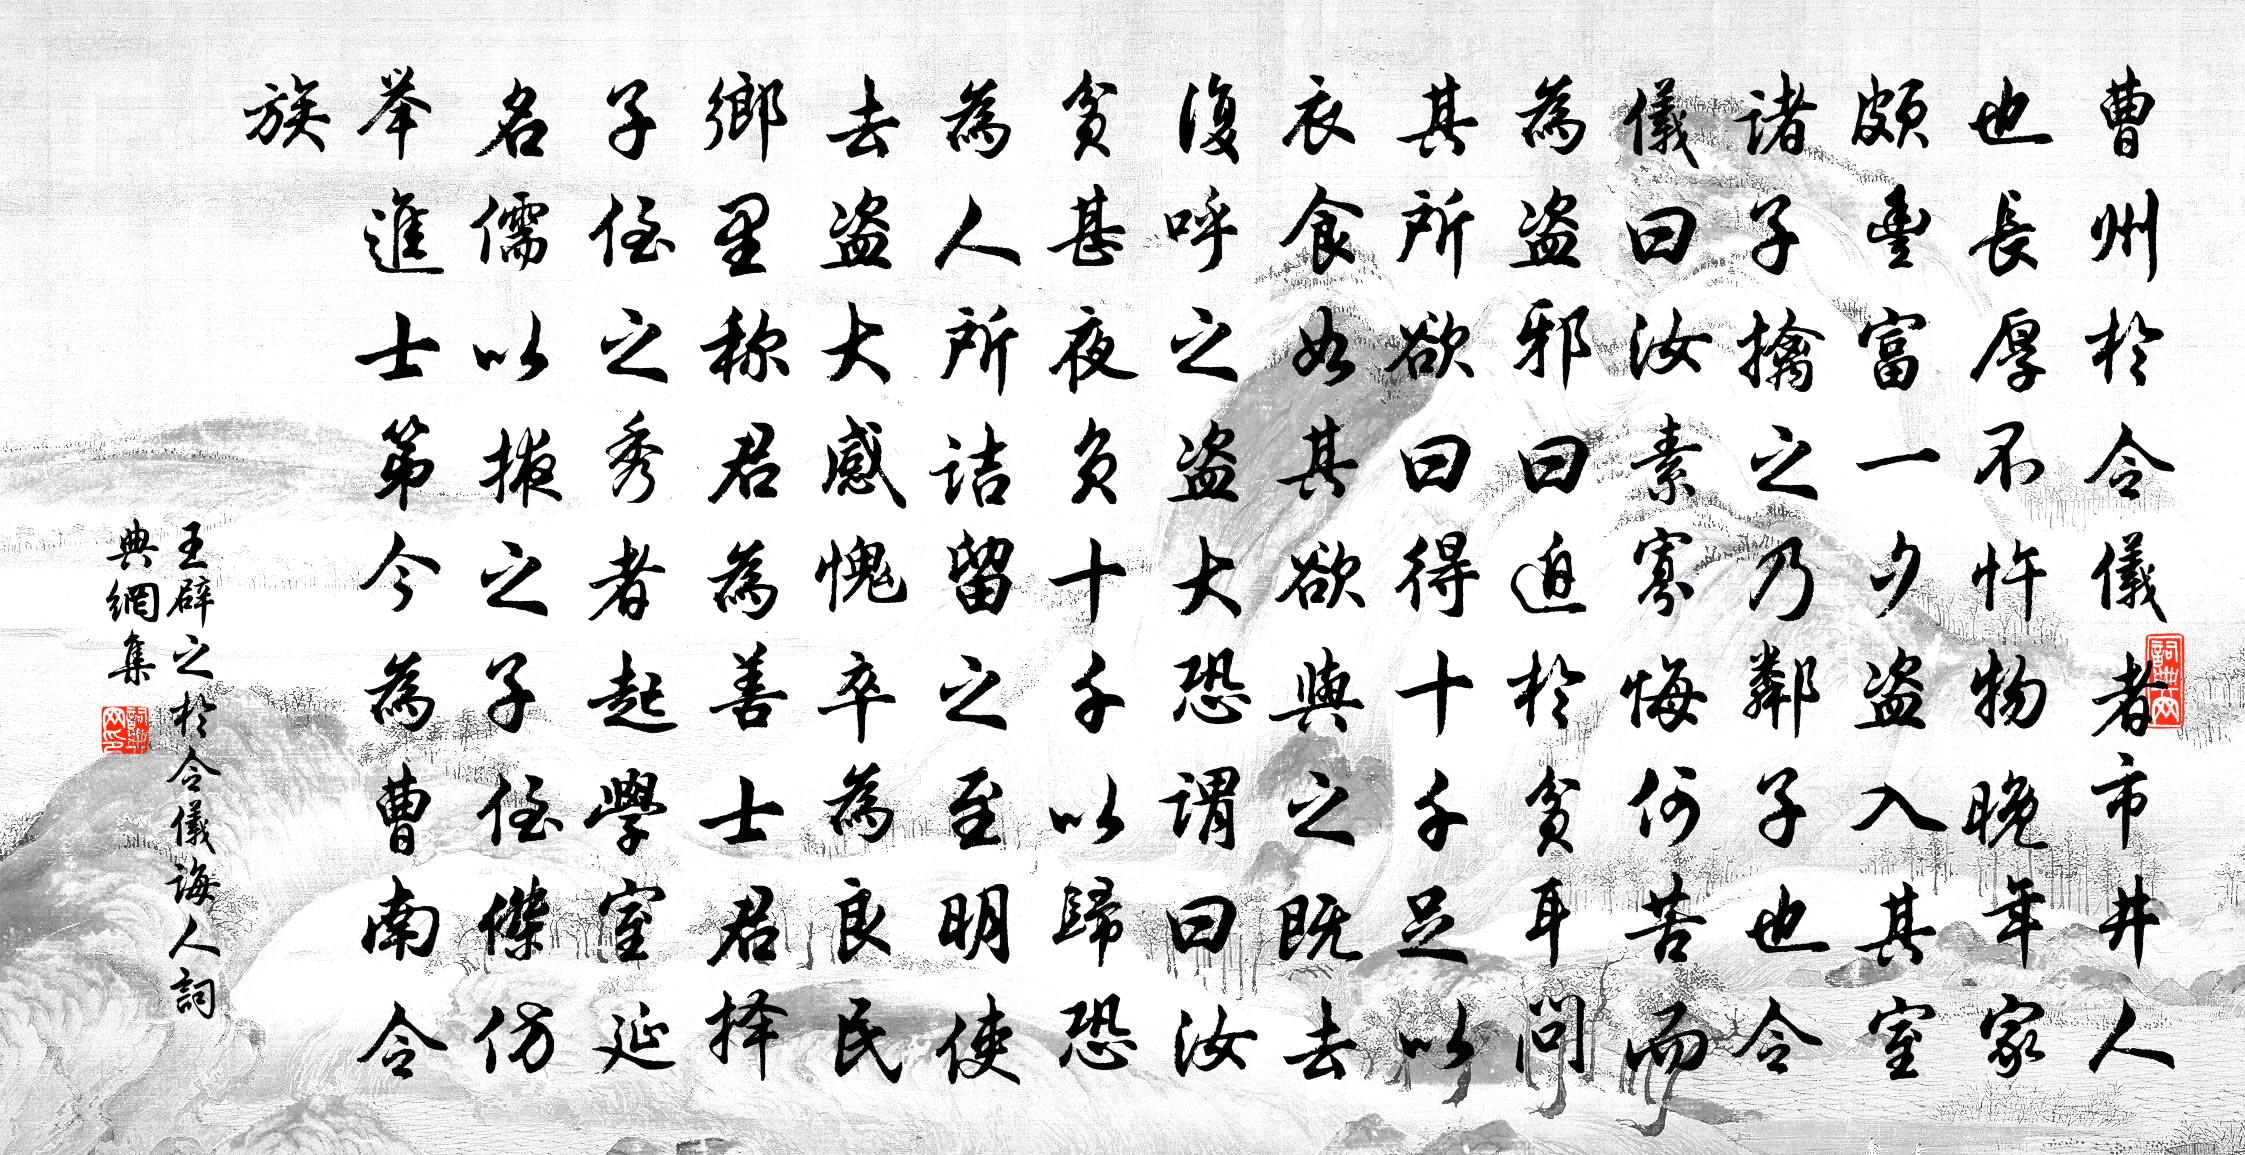 曹州於令儀者市井人
也長厚不忤物晚年家
頗豊富一夕盗入其室
諸子擒之乃鄰子也令
儀曰汝素寡悔何苦而
為盗邪曰迫於貧耳問
其所欲曰得十千足以
衣食如其欲與之既去
復呼之盗大恐謂曰汝
貧甚夜负十千以歸恐
為人所詰留之至明使
去盗大感愧卒為良民
鄉里称君為善士君择
子侄之秀者起學室延
名儒以掖之子侄傑仿
举進士第今為曹南令
族
王辟之於令儀誨人詞
典網集